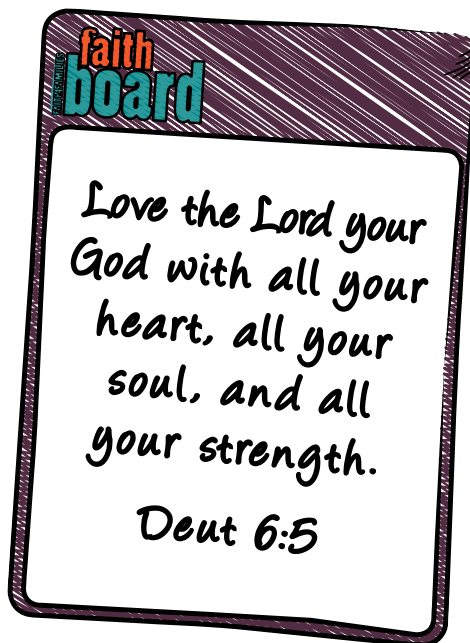 faith
board
Love the Lord your
God with all your
heart, all your
soul, and all
your strength.
Deut 6:5